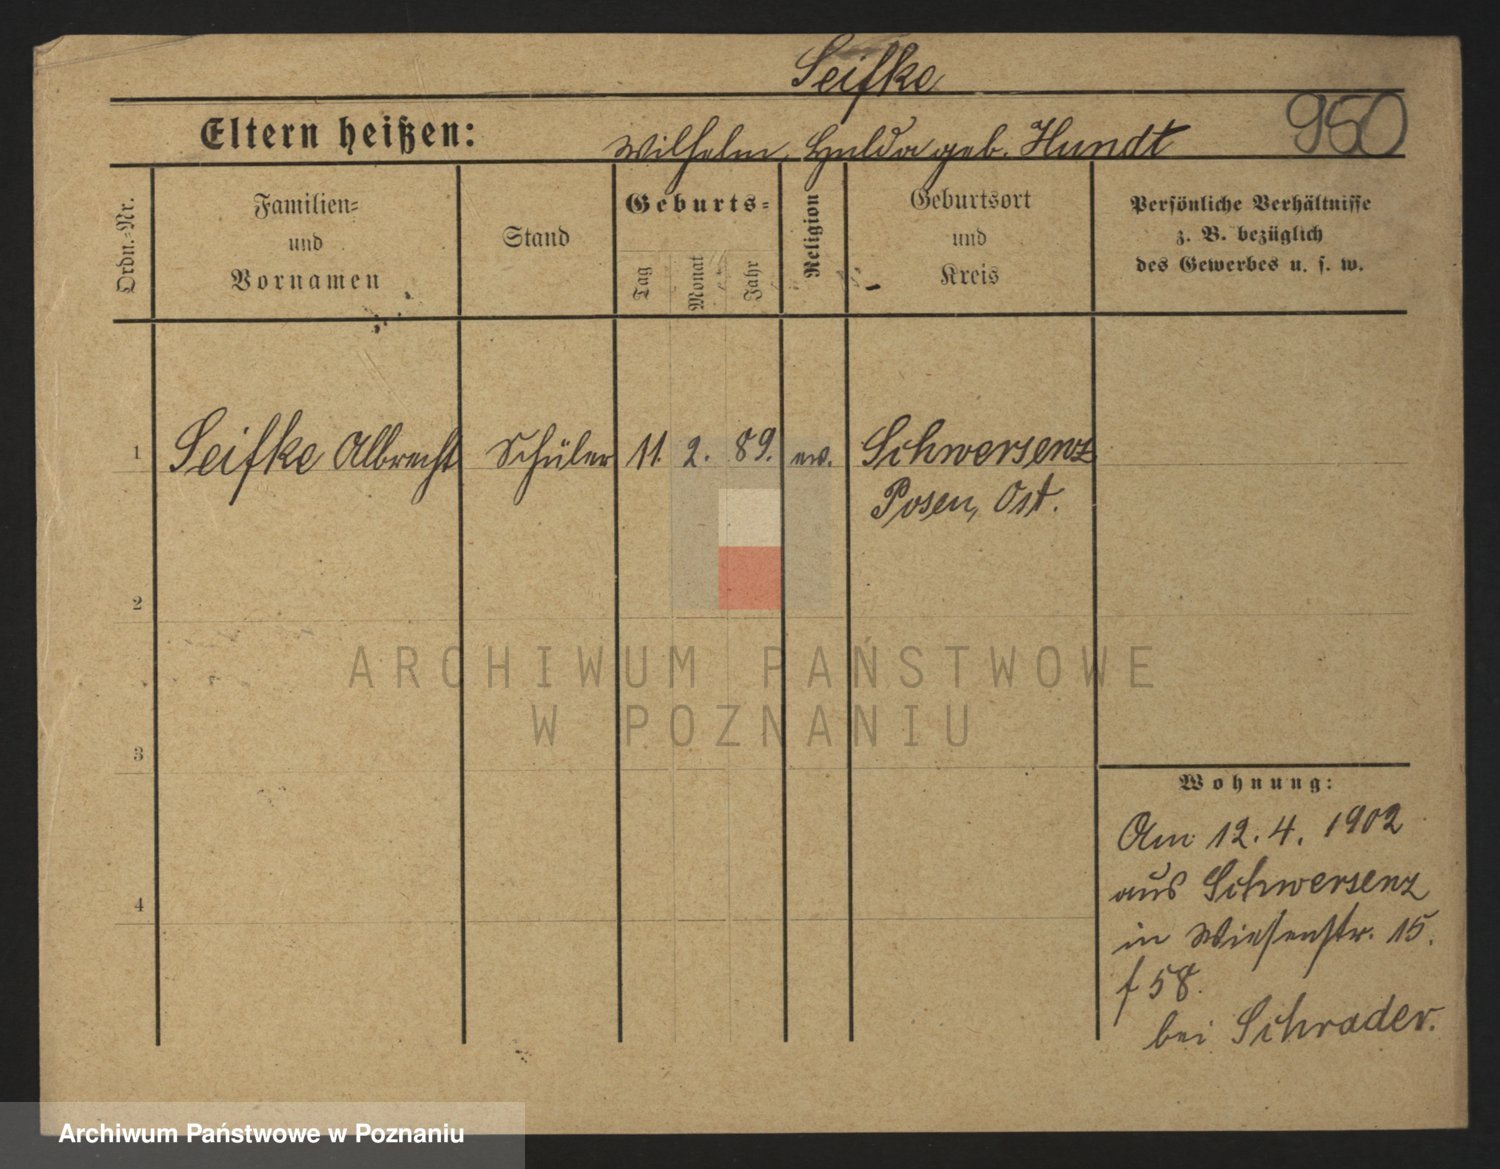 Seifke
Eltern heißen: Wilhelm, Hulda geb. Hundt 950
Ordn.=Nr.
Familien=
und
Vornamen
Stand
Geburts=
Tag
Monat
Jahr
Religion
Geburtsort
und
Kreis
Persönliche Verhältnisse
z. B. bezüglich
des Gewerbes u. s. w.
1 Seifke Albrecht Schüler 11. 2. 89. ev. Schwersenz
Posen, Ost.
2
3
4
Wohnung:
Am 12. 4. 1902
aus Schwersenz
in Wiesenstr. 15.
f 58.
bei Schrader.
ARCHIWUM PAŃSTWOWE
W POZNANIU
Archiwum Państwowe w Poznaniu